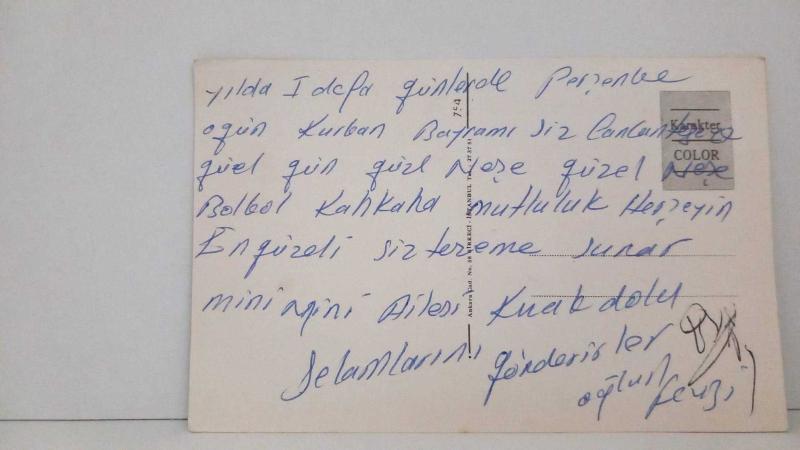 yılda I defa günlerde Perşenbe
ogün Kurban Bayramı siz Canlan
güzel gün güzl Neşe güzel Neşe
Bolbol Kahkaha mutluluk Herşeyin
En güzeli sizlereme sunar
mini mini Ailesi Kucak dolu
Selamlarını gönderirler
oğlun Fevzi
754
Ankara Cad. No. 58 SİRKECİ - İSTANBUL Tel. 27 37 51
Karakter
COLOR